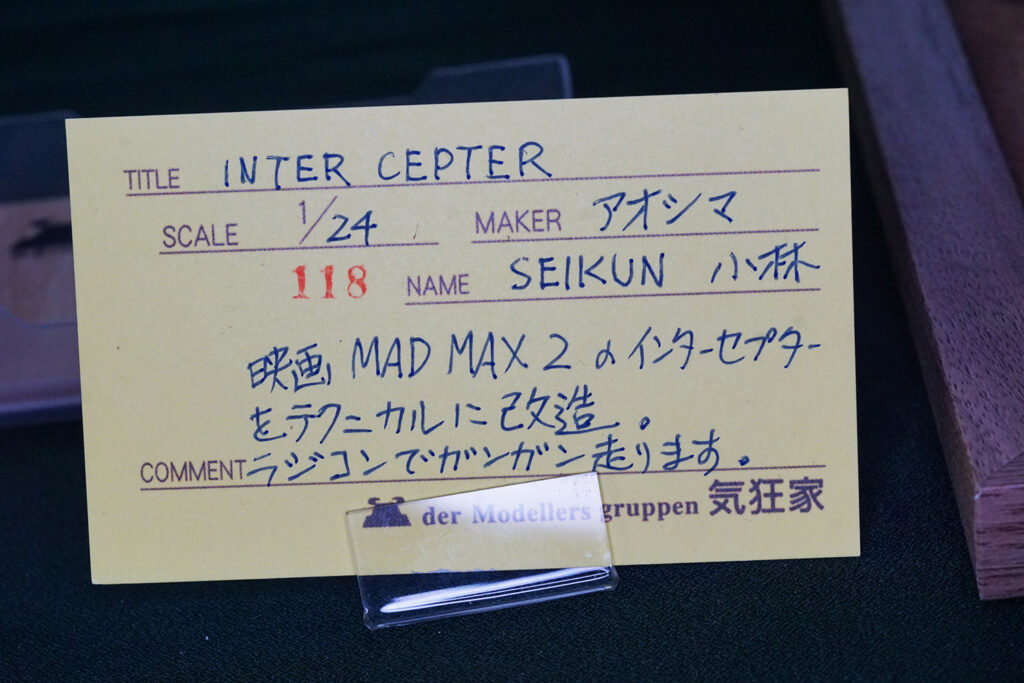 TITLE INTER CEPTER
SCALE 1/24 MAKER アオシマ
118 NAME SEIKUN 小林
映画 MAD MAX 2 のインターセプター
をテクニカルに改造。
COMMENT ラジコンでガンガン走ります。
der Modellers gruppen 気狂家